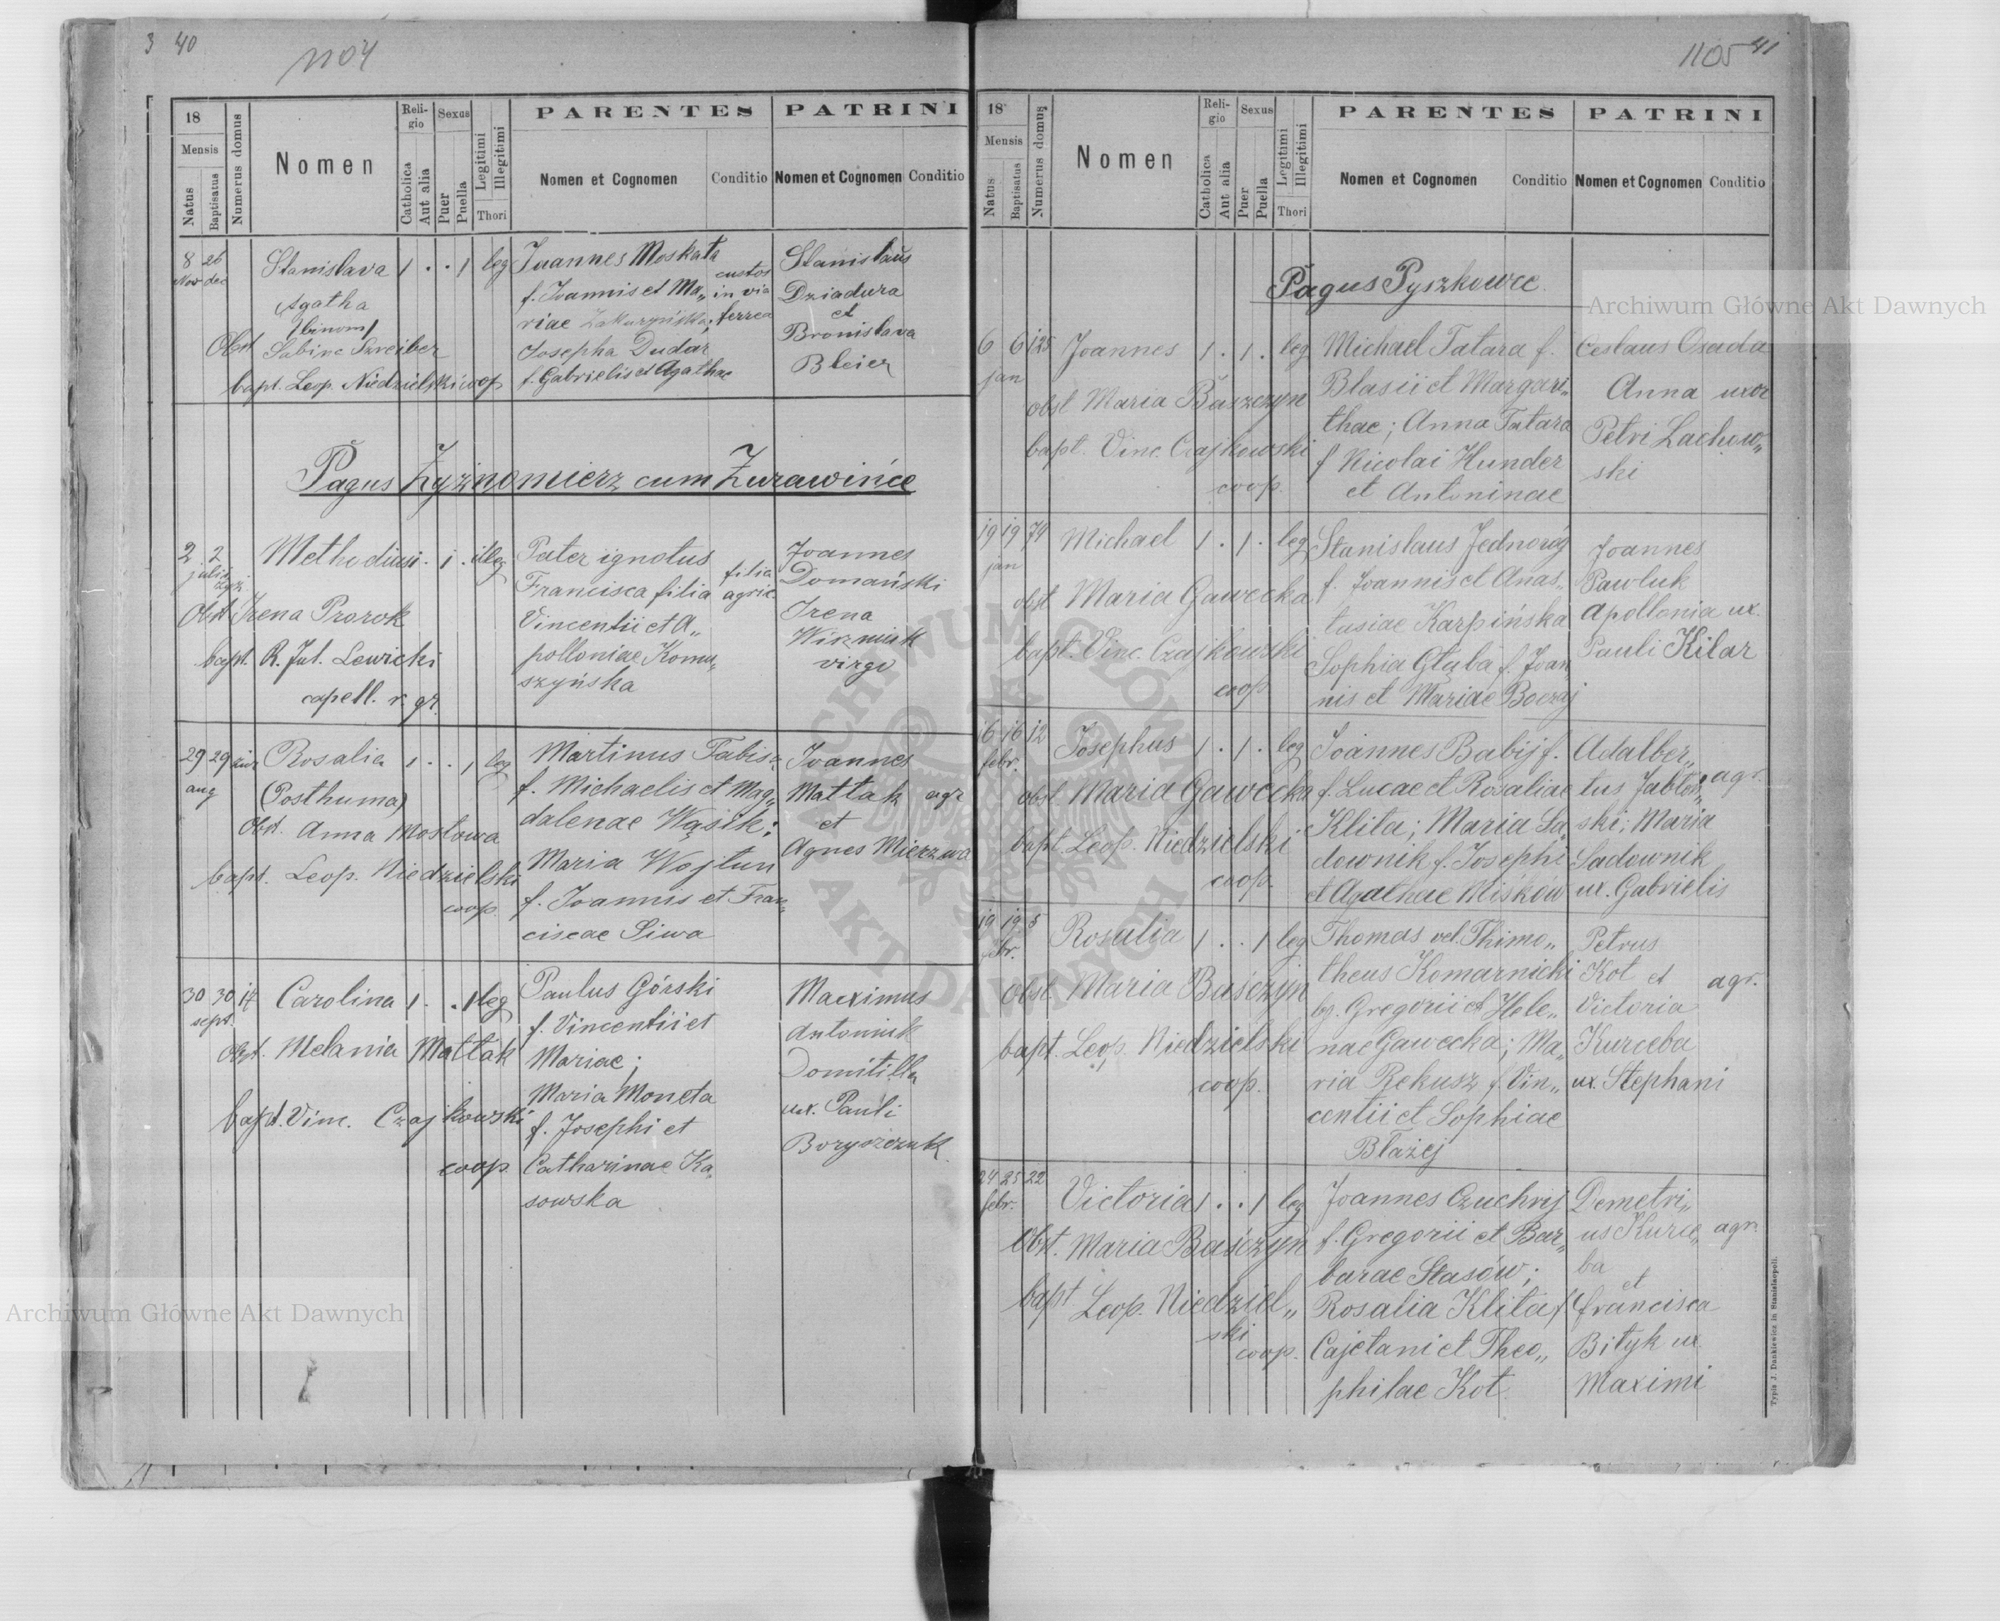 3 40
1104
18
Mensis
Natus
Baptisatus
Numerus domus
Nomen
Religio
Catholica
Aut alia
Sexus
Puer
Puella
Legitimi
Illegitimi
Thori
PARENTES
Nomen et Cognomen
Conditio
PATRINI
Nomen et Cognomen
Conditio
8 26
Nov dec
Stanislava 1 . . 1 leg
Agatha
(binom)
Obst Sabine Szreiber
bapt. Leop. Niedzielski coop
Joannes Moskata
f. Joannis et Ma„
riae
Josepha Dudar
f. Gabrielis et Agathae
custos
in via
ferrea
Stanislaus
Dziadura
et
Bronislava
Bleier
Pagus Żyżnomierz cum Żurawińce
2 2
julii
Methodius 1 . 1 . illeg
Obst Irena Prorok
bapt. R. Jul. Lewicki
capell. r. gr.
Pater ignotus
Francisca filia
Vincentii et A„
polloniae Komu„
szyńska
filia
agric
Joannes
Domański
Irena
Wizniuk
virgo
29 29
aug
Rosalia 1 . . 1 leg
(Posthuma)
Obst. Anna Mostowa
bapt. Leop. Niedzielski
coop
Martinus Fabisz
f. Michaelis et Mag„
dalenae Wąsik;
Maria Wojtun
f. Joannis et Fran„
ciscae Siwa
Joannes
Mattak agr
et
Agnes Mierzwa
30 30 17
sept.
Carolina 1 . . 1 leg
Obst. Melania Mattak
bapt. Vinc. Czajkowski
coop
Paulus Górski
f. Vincentii et
Mariae;
Maria Moneta
f. Josephi et
Catharinae Ka„
sowska
Maximus
Antoniuk
Domitilla
ux. Pauli
Boryszczuk
1105 41
18
Mensis
Natus
Baptisatus
Numerus domus
Nomen
Religio
Catholica
Aut alia
Sexus
Puer
Puella
Legitimi
Illegitimi
Thori
PARENTES
Nomen et Cognomen
Conditio
PATRINI
Nomen et Cognomen
Conditio
Pagus Pyszkowce
6 6 125
jan
Joannes 1 . 1 . leg
obst Maria Baszczyn
bapt. Vinc. Czajkowski
coop.
Michael Tatara f.
Blasii et Margari„
thae; Anna Tatara
f Nicolai Hunder
et Antoninae
Ceslaus Osada
Anna uxor
Petri Lachow„
ski
19 19 74
jan
Michael 1 . 1 . leg
obst Maria Gawecka
bapt. Vinc. Czajkowski
coop
Stanislaus Jednoróg
f. Joannis et Anas„
tasiae Karpińska
Sophia Głąba f. Joan
nis et Mariae Boczaj
Joannes
Pawluk
Apollonia ux.
Pauli Kilar
16 16 12
febr.
Josephus 1 . 1 . leg
obst. Maria Gawecka
bapt Leop. Niedzielski
coop.
Joannes Babij f.
f. Lucae et Rosaliae
Klita; Maria Sa„
downik f. Josephi
et Agathae Miśków
Adalber„
tus Jabłoń„ agr.
ski; Maria
Sadownik
ux. Gabrielis
19 19 5
febr.
Rosalia 1 . . 1 leg
Obst Maria Baśczyn
bapt. Leop. Niedzielski
coop.
Thomas vel. Thimo„
theus Komarnicki
Gregorii et Hele„
nae Gawecka; Ma„
ria Rekusz f Vin„
centii et Sophiae
Błażej
Petrus
Kot et agr.
Victoria
Kurceba
ux. Stephani
24 25 22
febr.
Victoria 1 . . 1 leg
Obst. Maria Baśczyn
bapt Leop. Niedziel„
ski
coop.
Joannes Czuchrij
f. Gregorii et Bar„
barae Stasów;
Rosalia Klita f
Cajetani et Theo„
philae Kot
Demetri„
us Kurce„ agr.
ba
et
Francisca
Bityk ux.
Maximi
Typis J. Dankiewicz in Stanislaopoli.
Archiwum Główne Akt Dawnych
Archiwum Główne Akt Dawnych
ARCHIWUM GŁÓWNE
AKT DAWNYCH